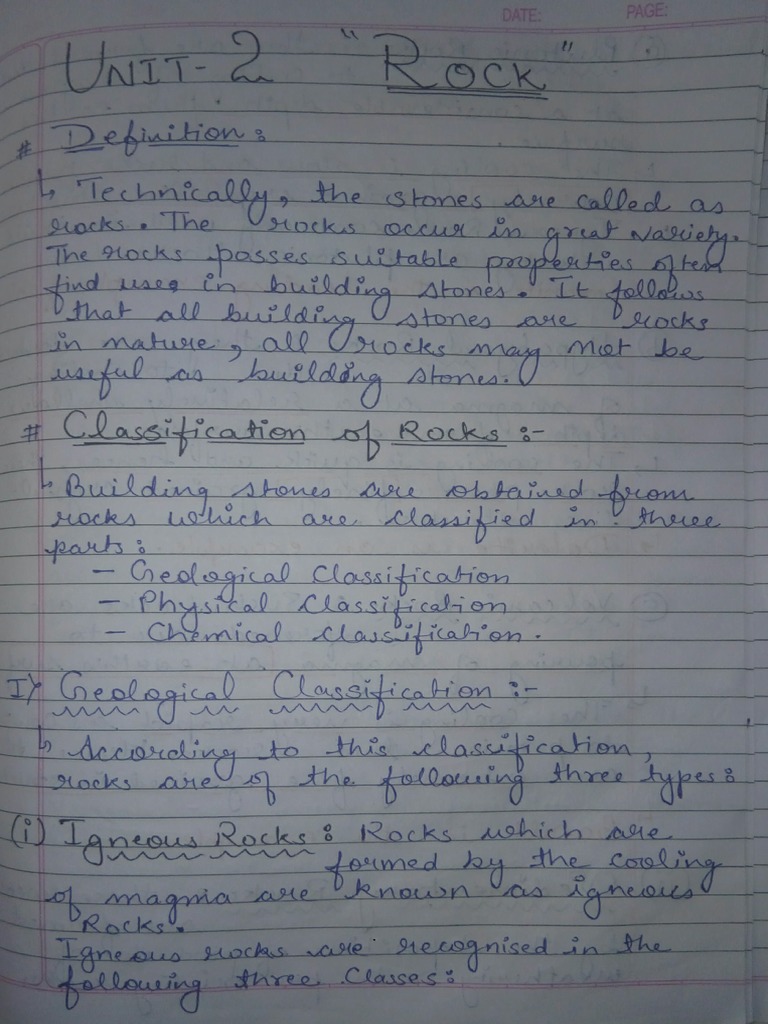 DATE: PAGE:
UNIT-2 "ROCK"
# Definition :
↳ Technically, the stones are called as
rocks. The rocks occur in great variety.
The rocks posses suitable properties often
find uses in building stones. It follows
that all building stones are rocks
in nature, all rocks may not be
useful as building stones.
# Classification of Rocks :-
↳ Building stones are obtained from
rocks which are classified in three
parts :
- Geological Classification
- Physical Classification
- Chemical Classification.
I) Geological Classification :-
↳ According to this classification,
rocks are of the following three types :
(i) Igneous Rocks : Rocks which are
formed by the cooling
of magma are known as igneous
Rocks.
Igneous rocks are recognised in the
following three Classes :